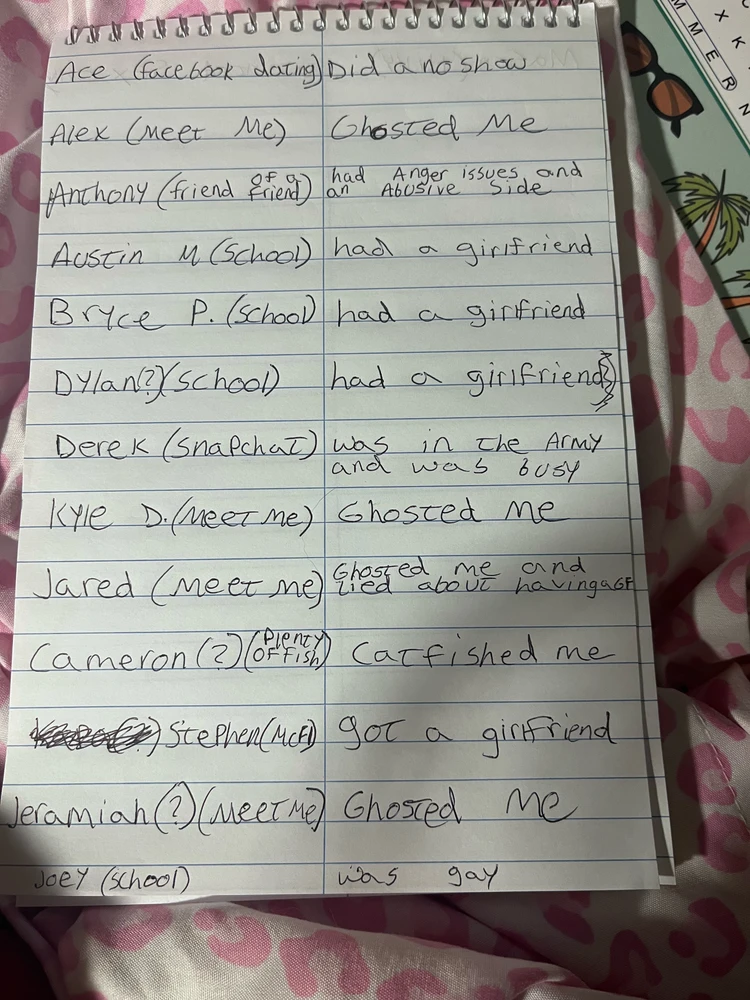 Ace (facebook dating) Did a no show
Alex (Meet Me) Ghosted Me
Anthony (friend of a friend) had Anger issues and an Abusive Side
Austin M (School) had a girlfriend
Bryce P. (School) had a girlfriend
Dylan(?)(School) had a girlfriend
Derek (Snapchat) was in the Army and was busy
Kyle D. (Meet me) Ghosted Me
Jared (Meet me) Ghosted me and lied about having a GF
Cameron (?) (Plenty Of fish) Catfished me
Stephen (McFl) got a girlfriend
Jeramiah (?) (Meet Me) Ghosted Me
Joey (School) was gay
M M E R
X K